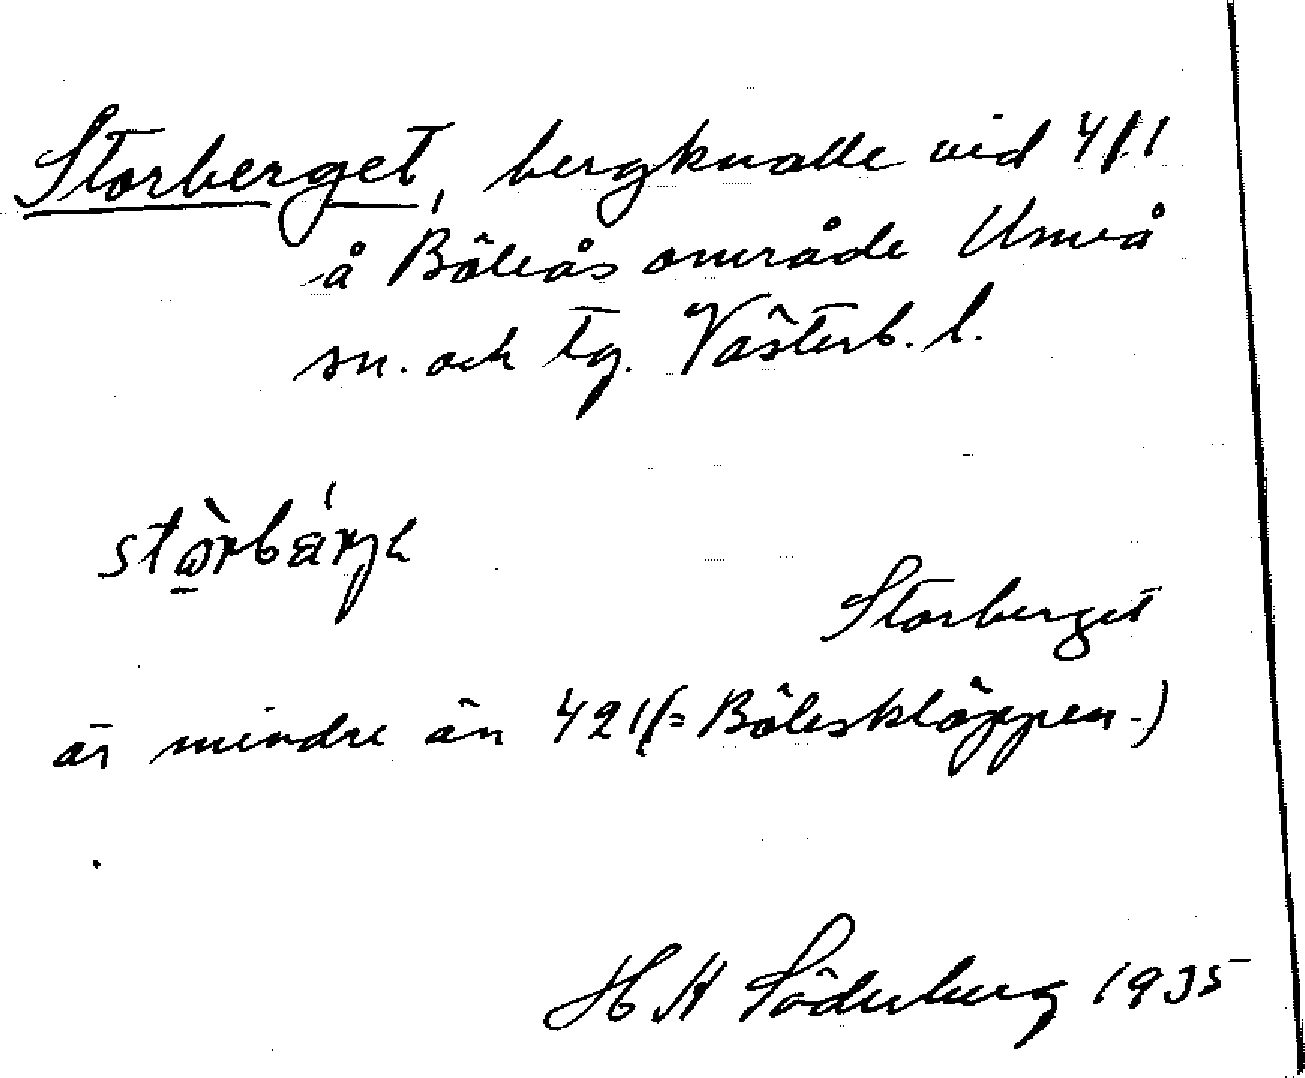 Storberget, bergknalle vid 4/1
å Böleås område Umeå
sn. och tg. Västerb. l.
Storberget
är mindre än 421 (= Bölesklöppen.)
H H Söderberg 1935